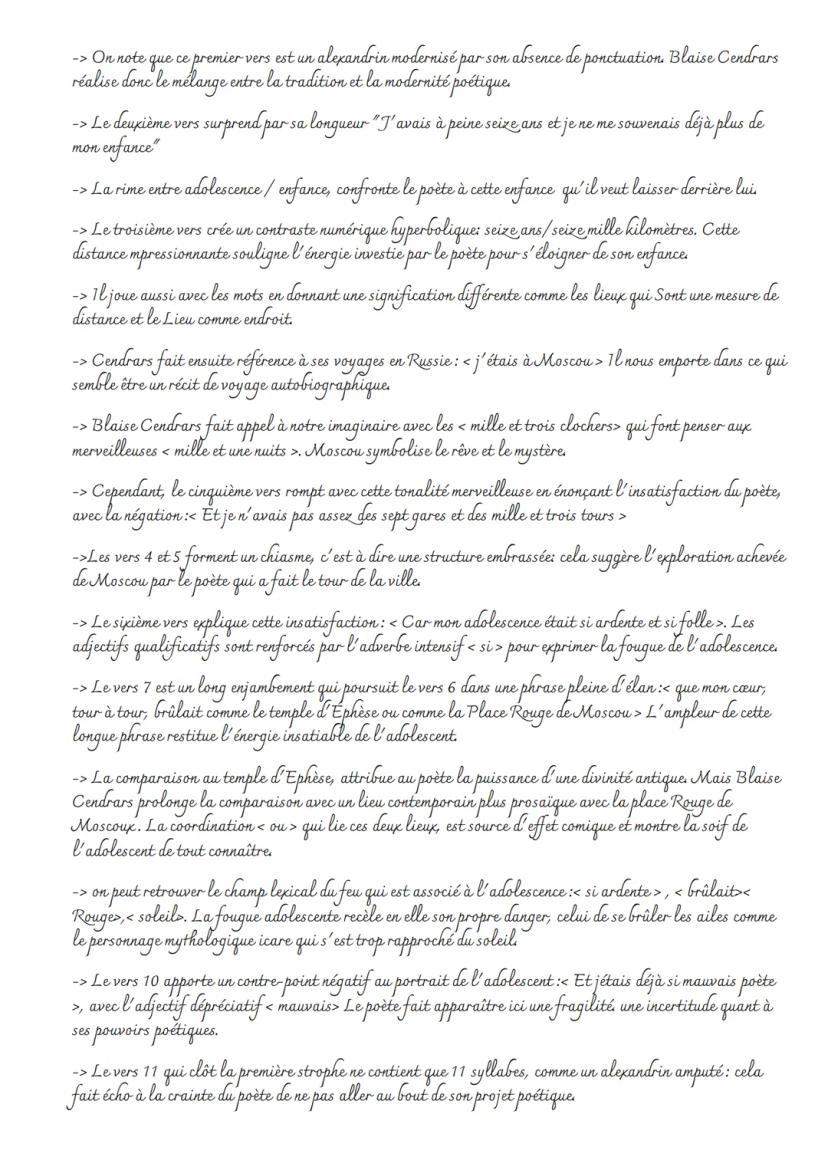 -> On note que ce premier vers est un alexandrin modernisé par son absence de ponctuation. Blaise Cendrars
réalise donc le mélange entre la tradition et la modernité poétique.
-> Le deuxième vers surprend par sa longueur "J'avais à peine seize ans et je ne me souvenais déjà plus de
mon enfance"
-> La rime entre adolescence / enfance, confronte le poète à cette enfance qu'il veut laisser derrière lui.
-> Le troisième vers crée un contraste numérique hyperbolique: seize ans/seize mille kilomètres. Cette
distance mpressionnante souligne l'énergie investie par le poète pour s'éloigner de son enfance.
-> Il joue aussi avec les mots en donnant une signification différente comme les lieux qui Sont une mesure de
distance et le Lieu comme endroit.
-> Cendrars fait ensuite référence à ses voyages en Russie : < j'étais à Moscou > Il nous emporte dans ce qui
semble être un récit de voyage autobiographique.
-> Blaise Cendrars fait appel à notre imaginaire avec les < mille et trois clochers> qui font penser aux
merveilleuses < mille et une nuits >. Moscou symbolise le rêve et le mystère.
-> Cependant, le cinquième vers rompt avec cette tonalité merveilleuse en énonçant l'insatisfaction du poète,
avec la négation :< Et je n'avais pas assez des sept gares et des mille et trois tours >
->Les vers 4 et 5 forment un chiasme, c'est à dire une structure embrassée: cela suggère l'exploration achevée
de Moscou par le poète qui a fait le tour de la ville.
-> Le sixième vers explique cette insatisfaction : < Car mon adolescence était si ardente et si folle >. Les
adjectifs qualificatifs sont renforcés par l'adverbe intensif < si > pour exprimer la fougue de l'adolescence.
-> Le vers 7 est un long enjambement qui poursuit le vers 6 dans une phrase pleine d'élan :< que mon cœur,
tour à tour, brûlait comme le temple d'Éphèse ou comme la Place Rouge de Moscou > L'ampleur de cette
longue phrase restitue l'énergie insatiable de l'adolescent.
-> La comparaison au temple d'Ephèse, attribue au poète la puissance d'une divinité antique. Mais Blaise
Cendrars prolonge la comparaison avec un lieu contemporain plus prosaïque avec la place Rouge de
Moscoux. La coordination < ou > qui lie ces deux lieux, est source d'effet comique et montre la soif de
l'adolescent de tout connaître.
-> on peut retrouver le champ lexical du feu qui est associé à l'adolescence :< si ardente > , < brûlait><
Rouge>,< soleil>. La fougue adolescente recèle en elle son propre danger, celui de se brûler les ailes comme
le personnage mythologique icare qui s'est trop rapproché du soleil.
-> Le vers 10 apporte un contre-point négatif au portrait de l'adolescent :< Et jétais déjà si mauvais poète
>, avec l'adjectif dépréciatif < mauvais> Le poète fait apparaître ici une fragilité. une incertitude quant à
ses pouvoirs poétiques.
-> Le vers 11 qui clôt la première strophe ne contient que 11 syllabes, comme un alexandrin amputé : cela
fait écho à la crainte du poète de ne pas aller au bout de son projet poétique.